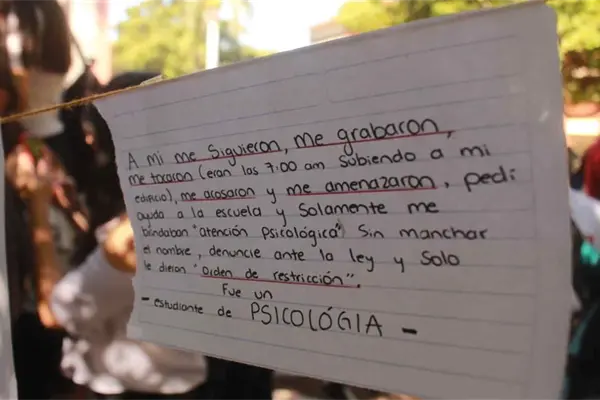 A mi me siguieron, me grabaron,
me tocaron (eran las 7:00 am subiendo a mi
edificio), me acosaron y me amenazaron, pedi
ayuda a la escuela y solamente me
bindaban "atención psicológica" sin manchar
el nombre, denuncie ante la ley y solo
le dieron "orden de restricción".
Fue un
- estudiante de PSICOLÓGIA -